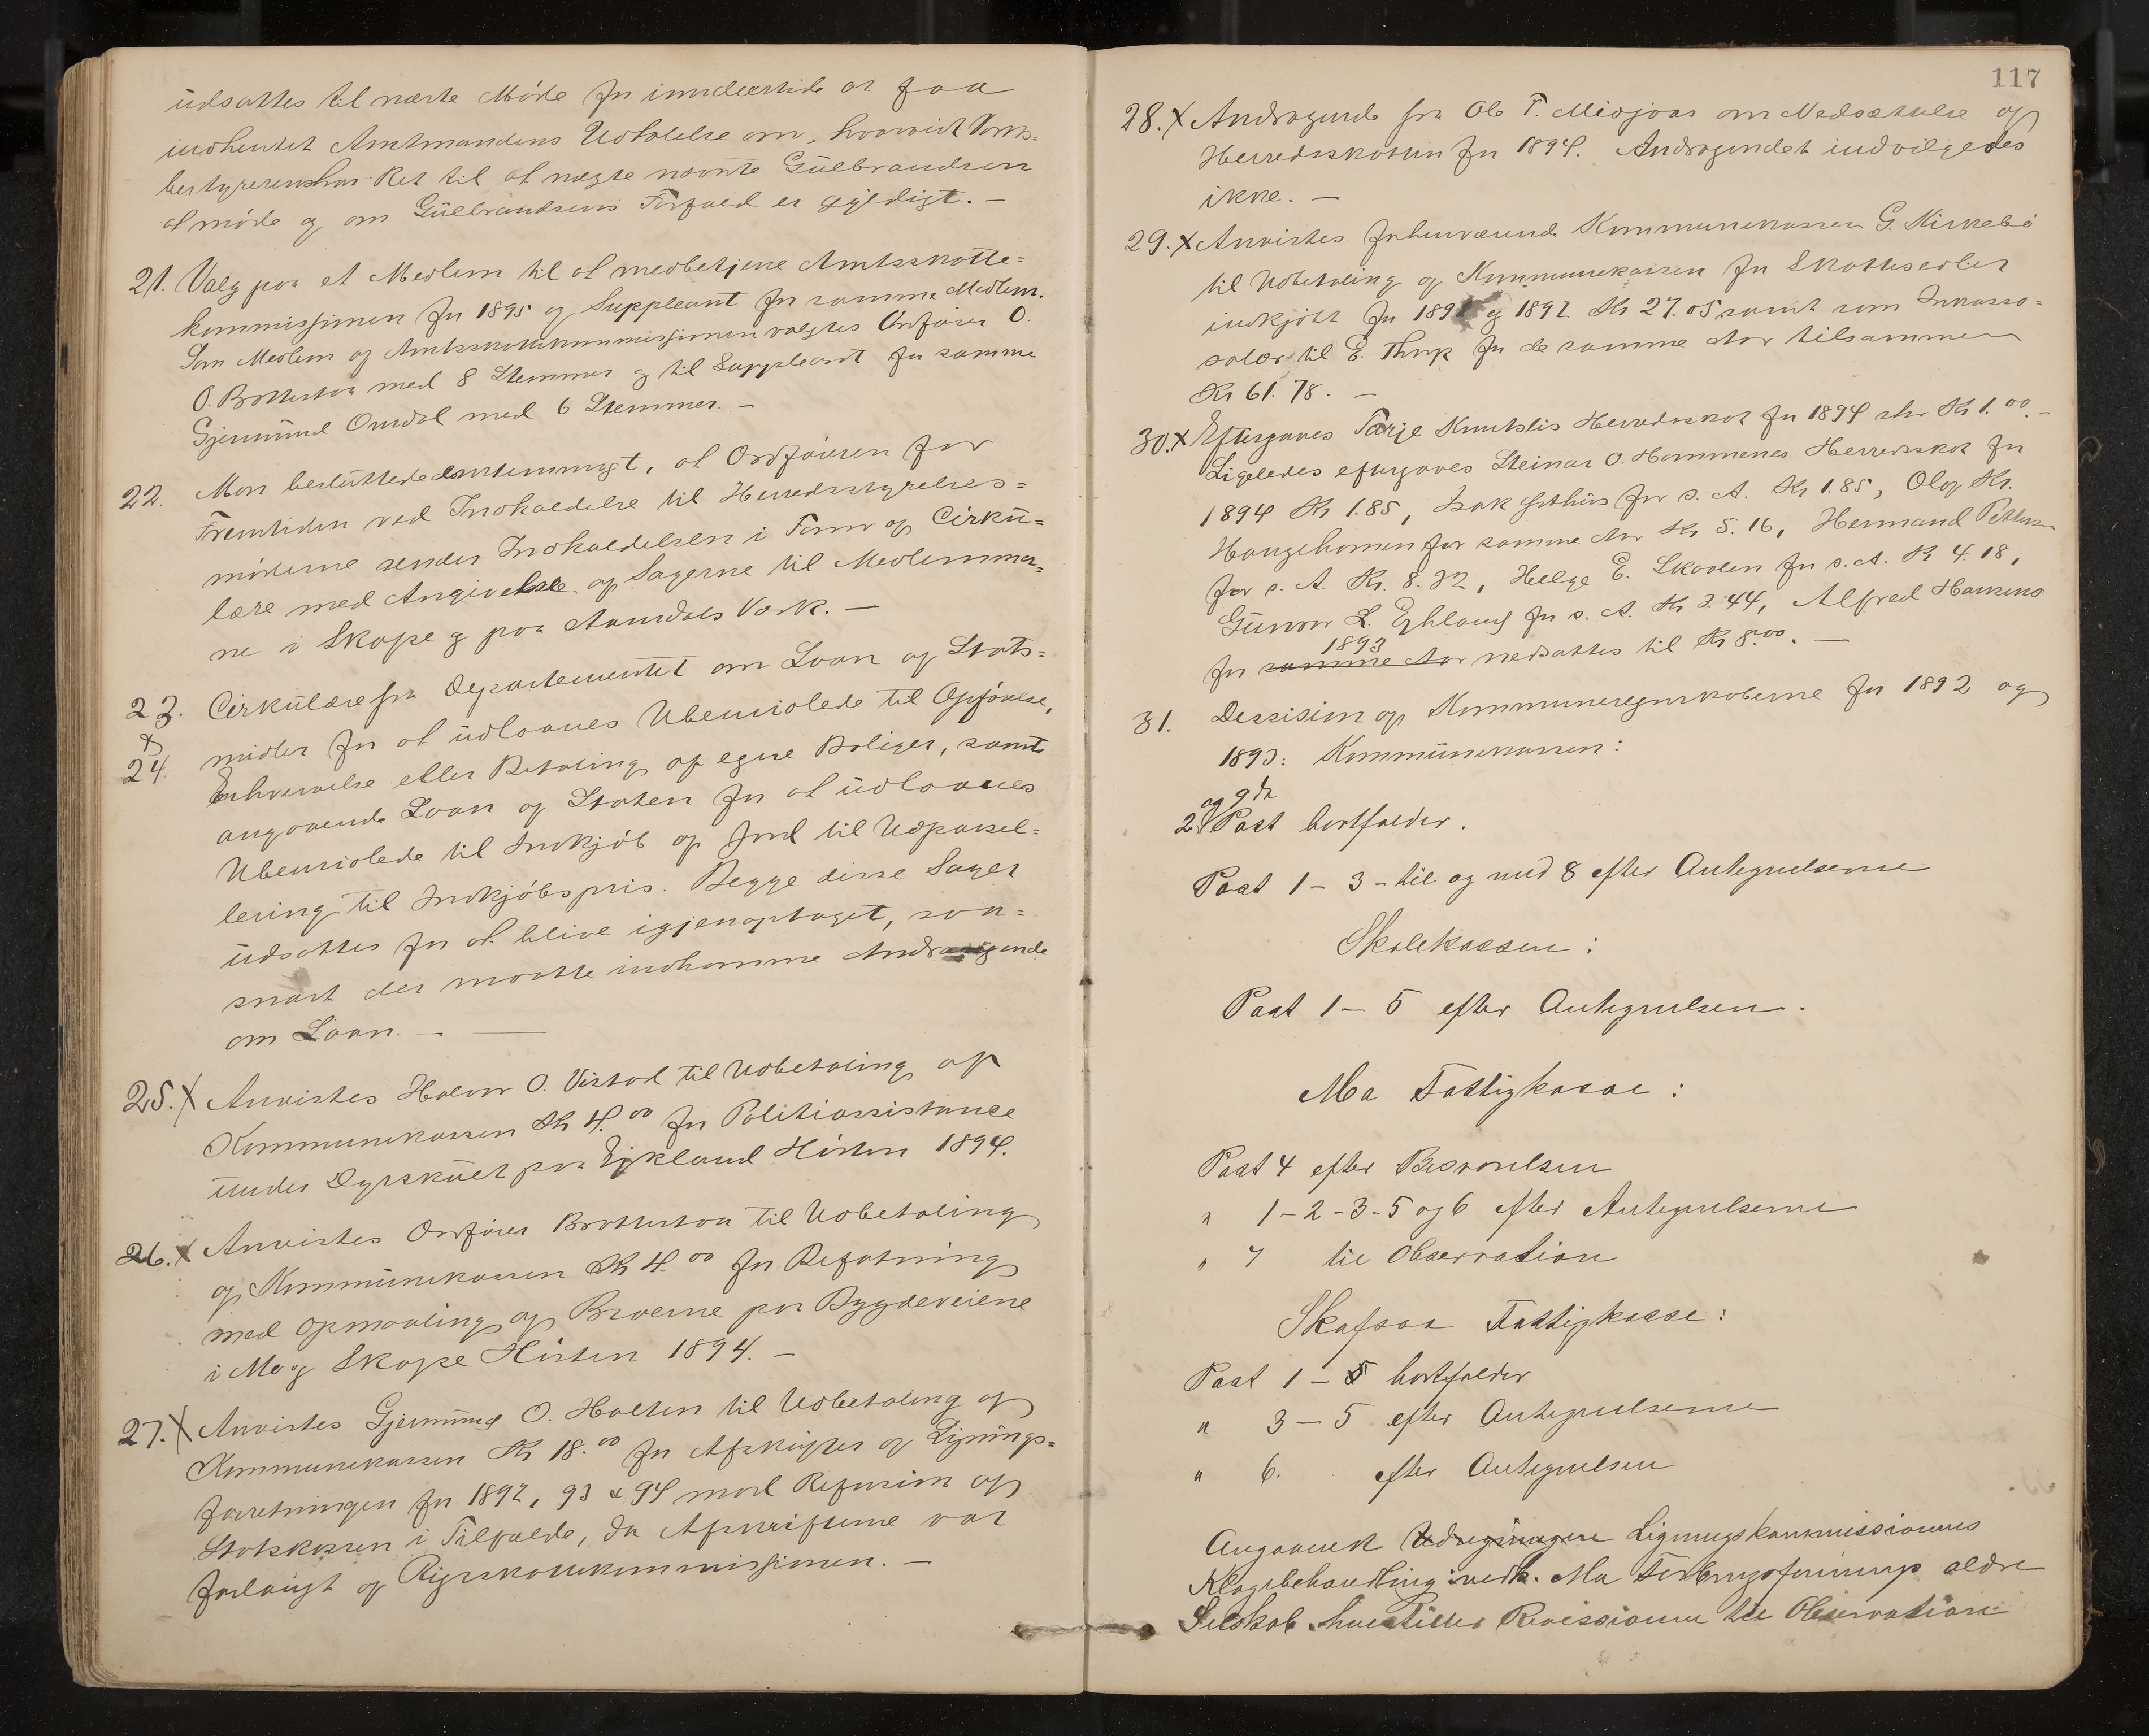 udsattes til næste Møde for imidlertid at faa
indhentet Amtmandens Udtalelse om, hvorvidt Værks=
bestyreren har Ret til at nægte nævnte Gulbrandsen
at møde og om Gulbrandsens Forfald er gyldigt. —
21. Valg paa et Medlem til at medbetjene Amtsskatte=
kommissionen for 1895 og Suppleant for samme Medlem.
Som Medlem af Amtsskattekommissionen valgtes Ordfører O.
O. Brottestaa med 8 Stemmer og til Suppleant for samme
Gjermund Omdal med 6 Stemmer. —
22. Man besluttede enstemmigt, at Ordføreren for
Fremtiden ved Indkaldelse til Herredsstyrelses=
møderne sender Indkaldelsen i Form af Cirku=
lære med Angivelse af Sagerne til Medlemmer=
ne i Skafse og paa Aamdals Værk. —
23. Cirkulære fra Departementet om Laan af Stats=
&
24. midler for at udlaanes Ubemidlede til Opførelse,
Erhvervelse eller Betaling af egne Boliger, samt
angaaende Laan af Staten for at udlaanes
Ubemidlede til Indkjøb af Jord til Udparsel=
lering til Indkjøbspris. Begge disse Sager
udsattes for at blive igjenoptaget, saa=
snart der maatte indkomme Andragende
om Laan. —
25. X Anvistes Halvor O. Vistad til Udbetaling af
Kommunekassen Kr 4.00 for Politiassistance
under Dyrskuet paa Eikland Høsten 1894.
26. X Anvistes Ordfører Brottestaa til Udbetaling
af Kommunekassen Kr 4.00 for Befatning
med Opmaaling af Broerne paa Bygdeveiene
i Mo og Skafse Høsten 1894. —
27. X Anvistes Gjermund O. Halten til Udbetaling af
Kommunekassen Kr 18.00 for Afskrifter af Lignings=
forretningen for 1892, 93 & 94 mod Refusion af
Statskassen i Tilfælde, da Afskrifterne var
forlangt af Rigsskattekommissionen. —
117
28. X Andragende fra Ole T. Midjaas om Nedsættelse af
Herredsskatten for 1894. Andragendet indvilgedes
ikke. —
29. X Anvistes forhenværende Kommunekasserer G. Kirkebø
til Udbetaling af Kommunekassen for Skattesedler
indkjøbt for 1891 og 1892 Kr 27.05 samt som Inkasso=
salær til E. for de samme Aar tilsammen
Kr 61.78. —
30. X Eftergaves Tarje Knutslis Herredsskat for 1894 stor Kr 1.00. —
Ligeledes eftergaves Steinar O. Hommenes Herredsskat for
1894 Kr 1.85, Isak for s. A. Kr 1.85, Olaf Kr.
Haugehomen for samme Aar Kr 5.16, Hermand
for s. A. Kr. 8.32, Helge E. Skaalen for s. A. Kr 4.18,
Gunvor L. for s. A. Kr 3.44, Alfred Hansens
1893
for samme Aar nedsattes til Kr 8.00. —
31. Dessision af Kommuneregnskaberne for 1892 og
1893: Kommunekassen:
og 9de
2 Post bortfalder.
Post 1 – 3 – til og med 8 efter Antegnelserne
Skolekassen:
Post 1 – 5 efter Antegnelsen.
Mo Fattigkasse:
Post 4 efter Besvarelsen
" 1 – 2 – 3 – 5 og 6 efter Antegnelserne
" 7 til Observation
Skafsaa Fattigkasse:
Post 1 – 5 bortfalder
" 3 – 5 efter Antegnelserne
" 6. efter Antegnelsen
Angaaende Ligningskommissionens
Klagebehandling vedk. Mo Forbrugsforenings ældre
Selskab henstilles Revissionen til Observation